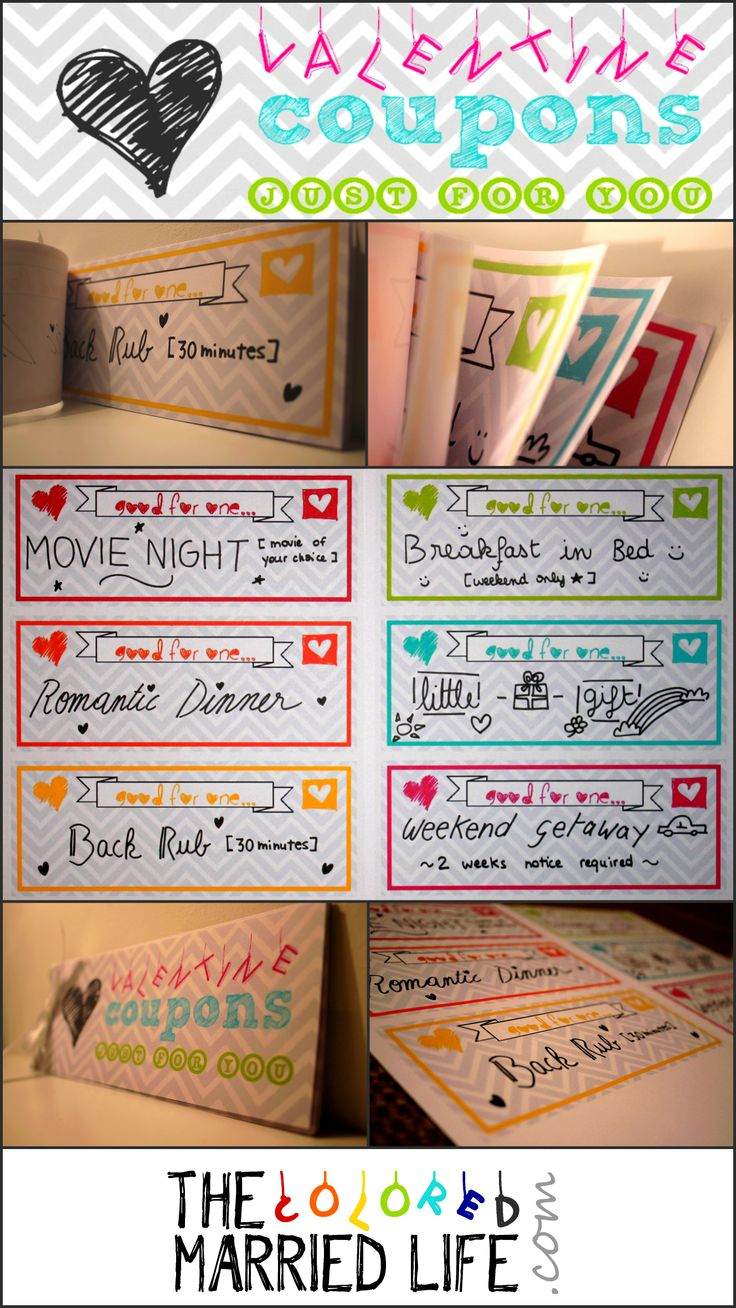 VALENTINE
coupons
JUST FOR YOU
good for one...
Back Rub [30 minutes]
good for one...
MOVIE NIGHT [movie of
your choice]
good for one...
Breakfast in Bed
[weekend only ★]
good for one...
Romantic Dinner
good for one...
1 little - - 1 gift!
good for one...
Back Rub [30 minutes]
good for one...
weekend getaway
~2 weeks notice required~
VALENTINE
coupons
JUST FOR YOU
good for one...
Romantic Dinner
good for one...
Back Rub [30 minutes]
THE COLORED
MARRIED LIFE
.com